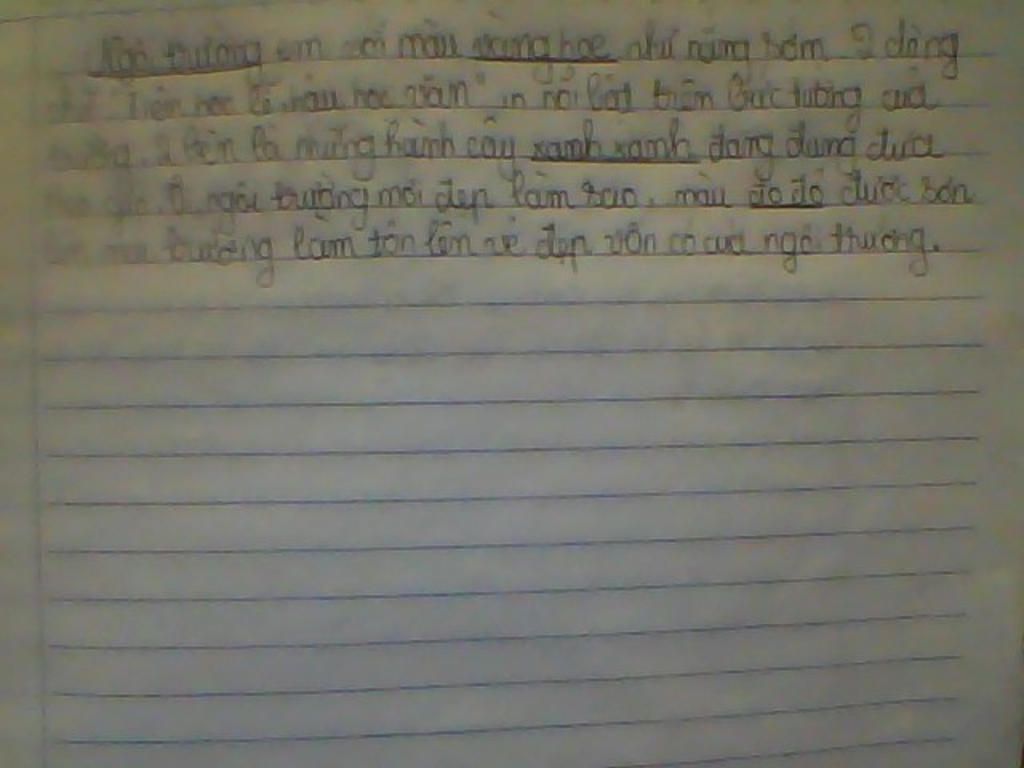 Ngô trường em với màu vàng hoe như nắng sớm 2 dòng
chữ "Tiên học lễ, hậu học văn" in nổi bật trên bức tường của
trường. 2 bên là những hành cây xanh xanh đang đung đưa
ngôi trường mới đẹp làm sao. màu đo đỏ được sơn
trường làm tôn lên vẻ đẹp vốn có của ngô thương.